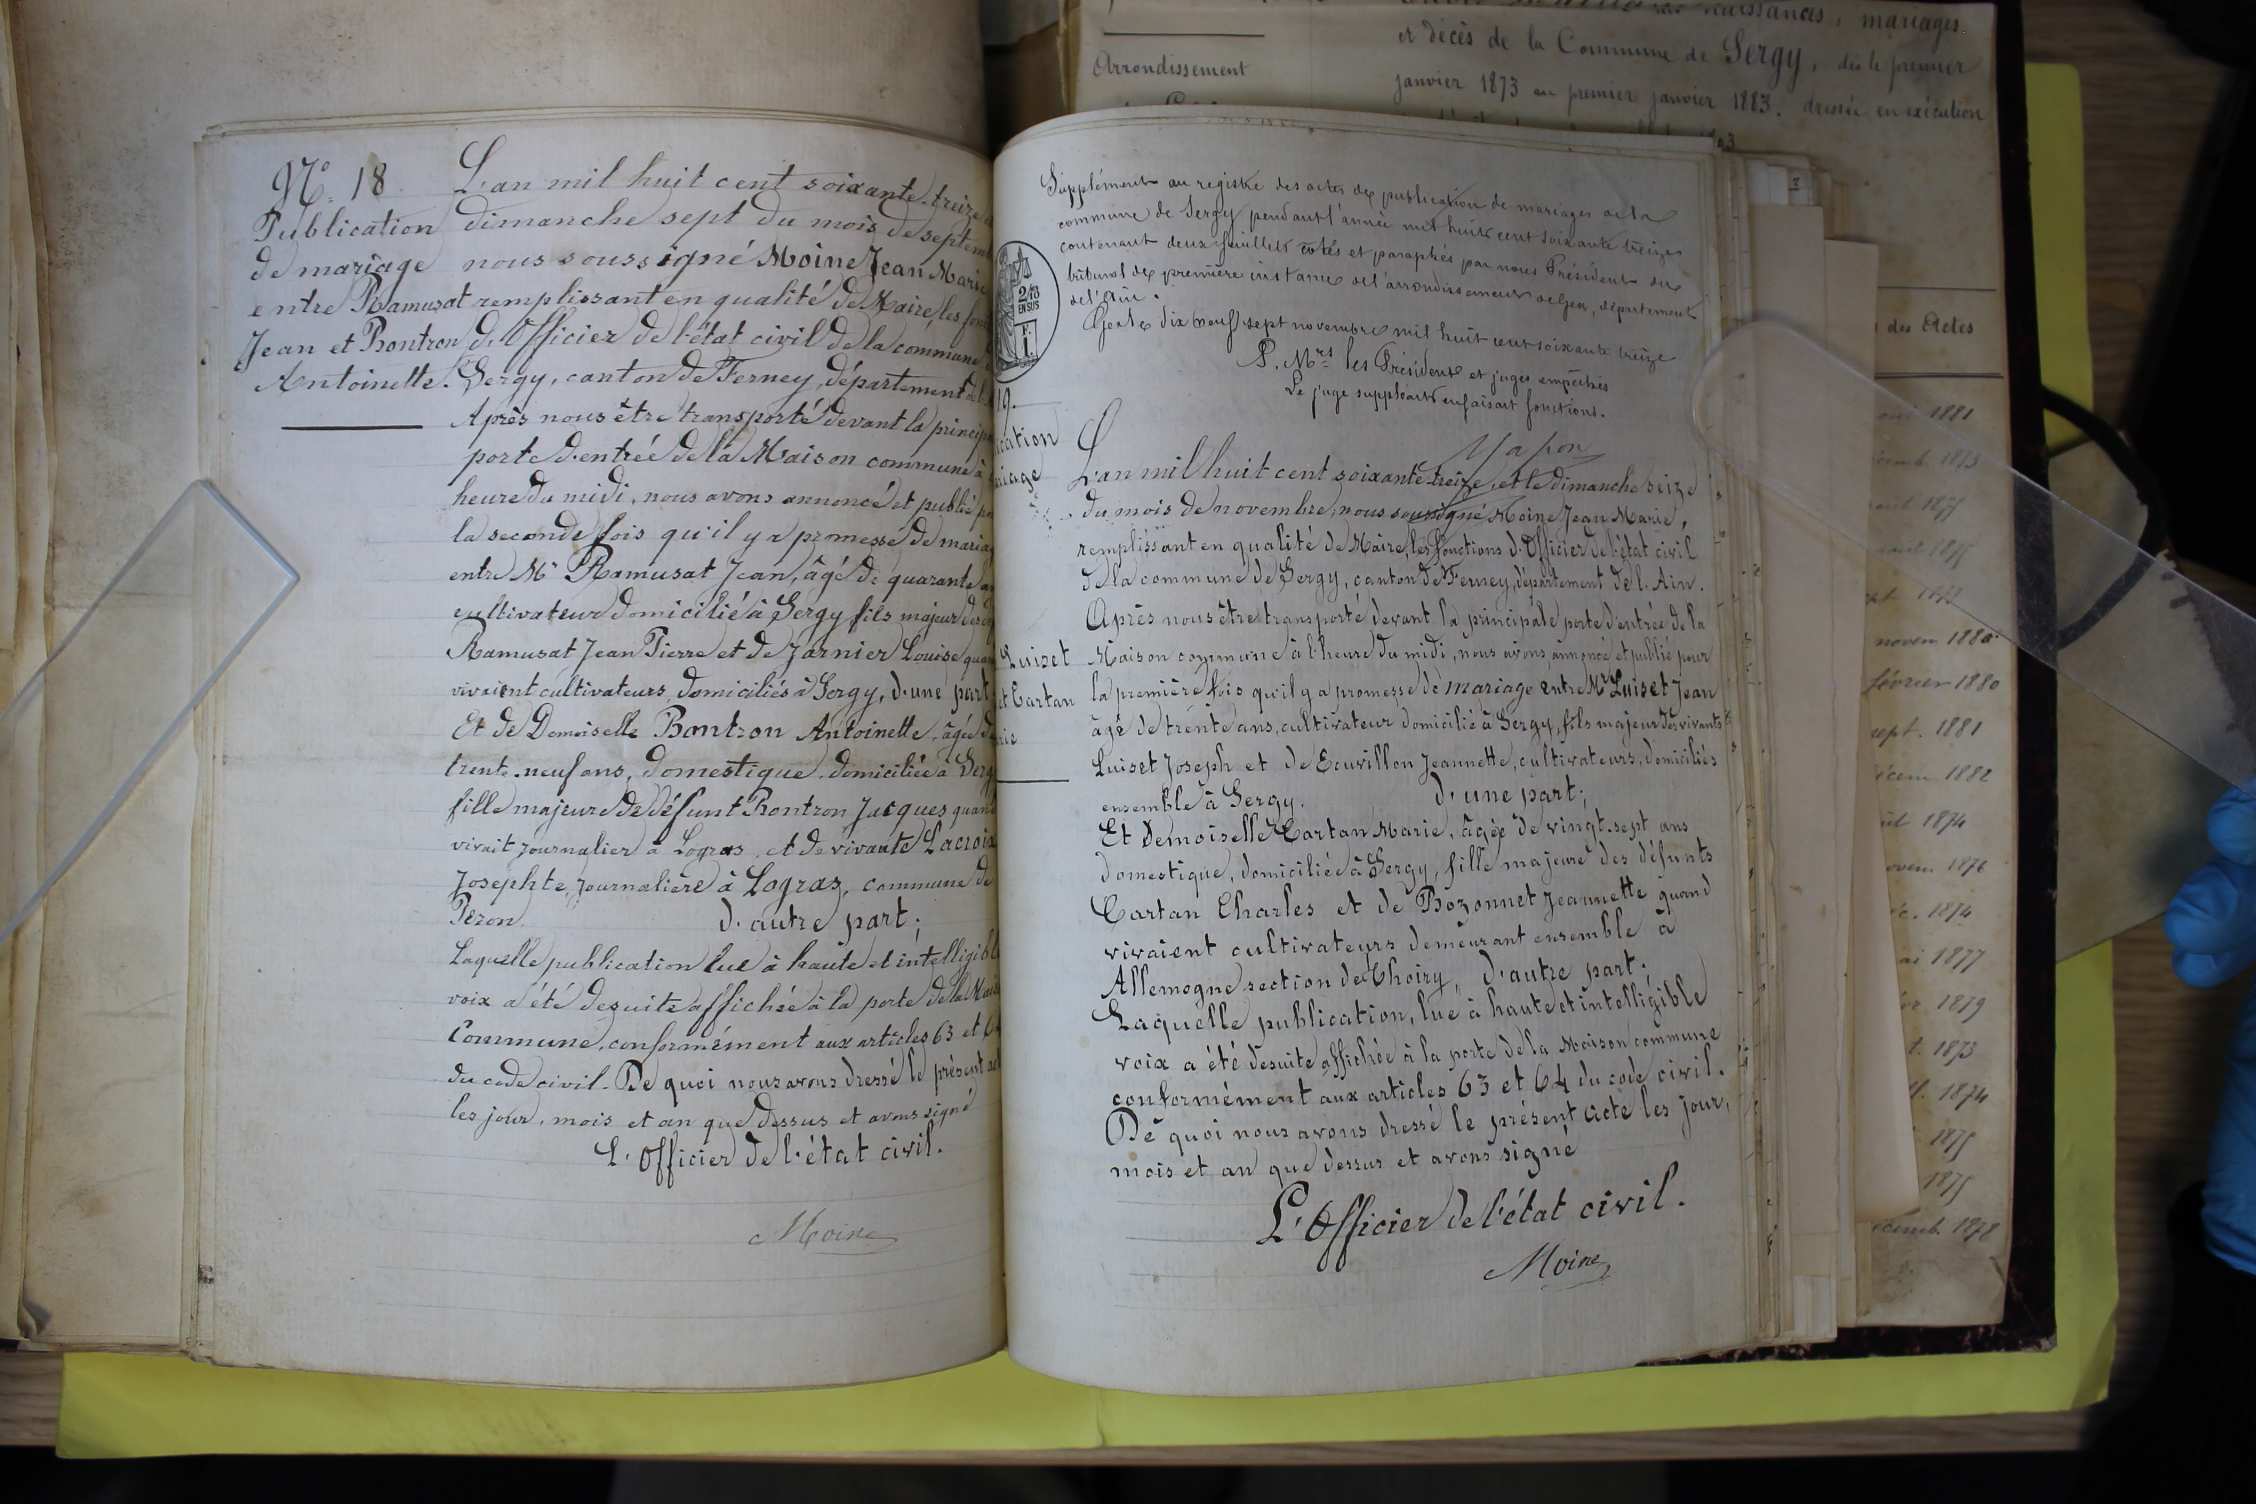 N° 18
Publication
de mariage
entre Ramusat
Jean et Rontron
Antoinette.
L'an mil huit cent soixante-treize
dimanche sept du mois de
nous soussigné Moine Jean Marie
remplissant en qualité de Maire, les
d'Officier de l'état civil de la commune
Sergy, canton de Ferney, département de
Après nous être transporté devant la
porte d'entrée de la Maison commune à
heure du midi, nous avons annoncé et publié
la seconde fois qu'il y a promesse de
entre Mr Ramusat Jean, âgé de quarante
cultivateur domicilié à Sergy fils majeur
Ramusat Jean Pierre et de Jarnier Louise
vivaient cultivateurs, domiciliés à Sergy, d'une part
Et de Demoiselle Rontron Antoinette, âgée
trente-neuf ans, domestique, domiciliée à
fille majeure de défunt Rontron Jacques
vivait journalier à Logras, et de vivante Lacroix
Josephte, journalière à Logras, commune de
Péron. d'autre part;
Laquelle publication lue à haute et
voix a été desuite affichée à la porte de la
Commune, conformément aux articles 63 et
du code civil. De quoi nous avons dressé le présent
les jour, mois et an que dessus et avons signé
L'Officier de l'état civil.
Moine
naissances, mariages
et décès de la Commune de Sergy, dès le premier
Arrondissement
janvier 1873 au premier janvier 1883, dressée en exécution
Supplément au registre des actes de publication de mariages de la
commune de Sergy pendant l'année mil huit cent soixante treize
contenant deux feuillets cotés et paraphés par nous Président du
tribunal de première instance de l'arrondissement de Gex, département
de l'Ain.
Gex le dix sept novembre mil huit cent soixante treize
P. Mrs les Président et juges empêchés
Le juge suppléant en faisant fonctions.
2/10
EN SUS
19.
L'an mil huit cent soixante-treize, et le dimanche seize
du mois de novembre, nous soussigné Moine Jean Marie,
remplissant en qualité de Maire, les fonctions d'Officier de l'état civil
de la commune de Sergy, canton de Ferney, département de l'Ain.
Après nous être transporté devant la principale porte d'entrée de la
Maison commune à l'heure du midi, nous avons annoncé et publié pour
la première fois qu'il y a promesse de mariage entre Mr Luiset Jean
âgé de trente ans, cultivateur domicilié à Sergy, fils majeur des vivants
Luiset Joseph et de Ecuvillon Jeannette, cultivateurs, domiciliés
ensemble à Sergy. d'une part;
Et Demoiselle Cartan Marie, âgée de vingt-sept ans
domestique, domiciliée à Sergy, fille majeure des défunts
Cartan Charles et de Bozonnet Jeannette quand
vivaient cultivateurs demeurant ensemble à
Allemogne section de Thoiry, d'autre part.
Laquelle publication, lue à haute et intelligible
voix a été desuite affichée à la porte de la Maison commune
conformément aux articles 63 et 64 du code civil.
De quoi nous avons dressé le présent acte les jour,
mois et an que dessus et avons signé
L'Officier de l'état civil.
Moine
Luiset
et Cartan
des Actes
1881
1873
1877
1875
noven 1880
février 1880
sept. 1881
1882
1874
1876
1874
1877
1879
1873
1874
1875
1875
1878